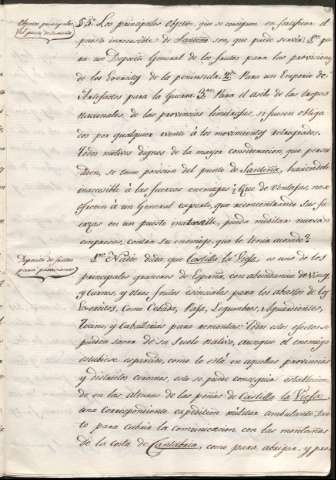 Objetos principales
del puerto de Santoña
§ 5º Los principales Objetos que se consiguen en fortificar el
puerto inaccesible de Santoña son, que puede servir: 1º pa
ra un Deposito General de los frutos para las provisiones
de los Exercitos de la peninsula: 2º Para un Emporio de
Artefactos para la Guerra: 3º Para el Asilo de las tropas
nacionales, de las provincias limitrofes, si fuesen obliga
dos por qualquier evento à los movimientos retrogrados.
Todos motivos dignos de la mayor consideracion que persua
den, se tome posesion del punto de Santoña, haciendole
inaccesible à las fuerzas enemigas; Que de ventajas nos
ofrecen à un General experto, que reconcentrando sus fu
erzas en un puesto inatacable, pueda meditar nuevas
empresas, contra su enemigo, que le tema donde?
Deposito de frutos
para provisiones
1º Nadie duda que Castilla la Vieja es uno de los
principales graneros de España, con abundancia de vinos
y carnes, y otros frutos esenciales para los abastos de los
Exercitos, como Cebada, Paja, Legumbres, Aguardientes,
Tocino y Caballerias para remontas: Todos estos efectos se
pueden sacar de su suelo nativo, aunque el enemigo
estubiese esparcido, como lo està en aquellas provincias
y distritos comunes, esto se puede conseguir establecien
do en las alturas de las peñas de Castilla la Vieja
una correspondiente expedicion militar ambulante, tan
to para cubrir la comunicacion con las montañas
de la costa de Cantabria, como para abrigar, y pro